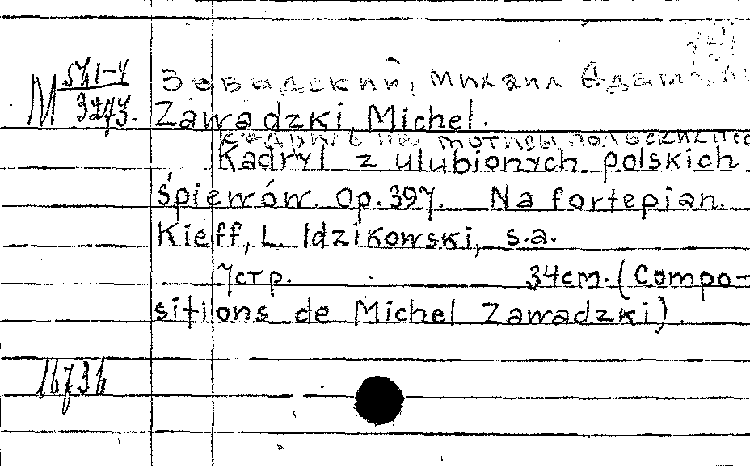 М 541-4/3243.
Завадский, Михаил Адам
Zawadzki, Michel.
Кадриль на мотивы польских
Kadryl z ulubionych polskich
śpiewów. Op. 397. Na fortepian.
Kieff, L. Idzikowski, s.a.
7стр. 34cm. (Compo-
sitions de Michel Zawadzki).
16736